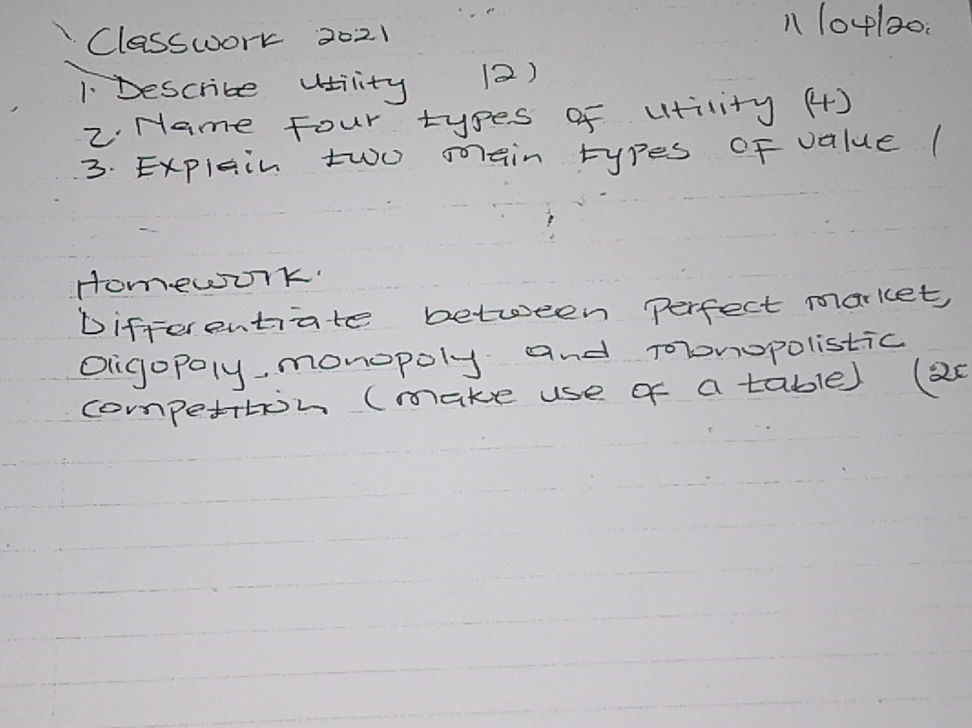 Classwork 2021 11/04/20
1. Describe Utility (2)
2. Name Four types of utility (4)
3. Explain two main types of value (
Homework.
Differentiate between Perfect market,
Oligopoly, monopoly and monopolistic
competition (make use of a table) (20